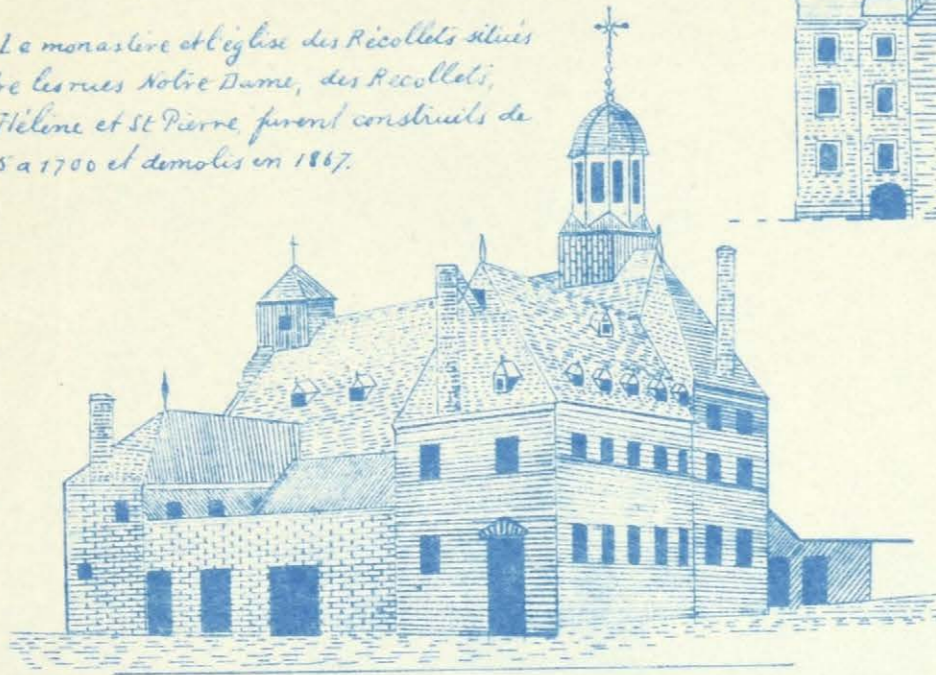 Le monastère et l'église des Récollets situés
re les rues Notre Dame, des Recollets,
Hélène et St Pierre, furent construits de
5 a 1700 et demolis en 1867.